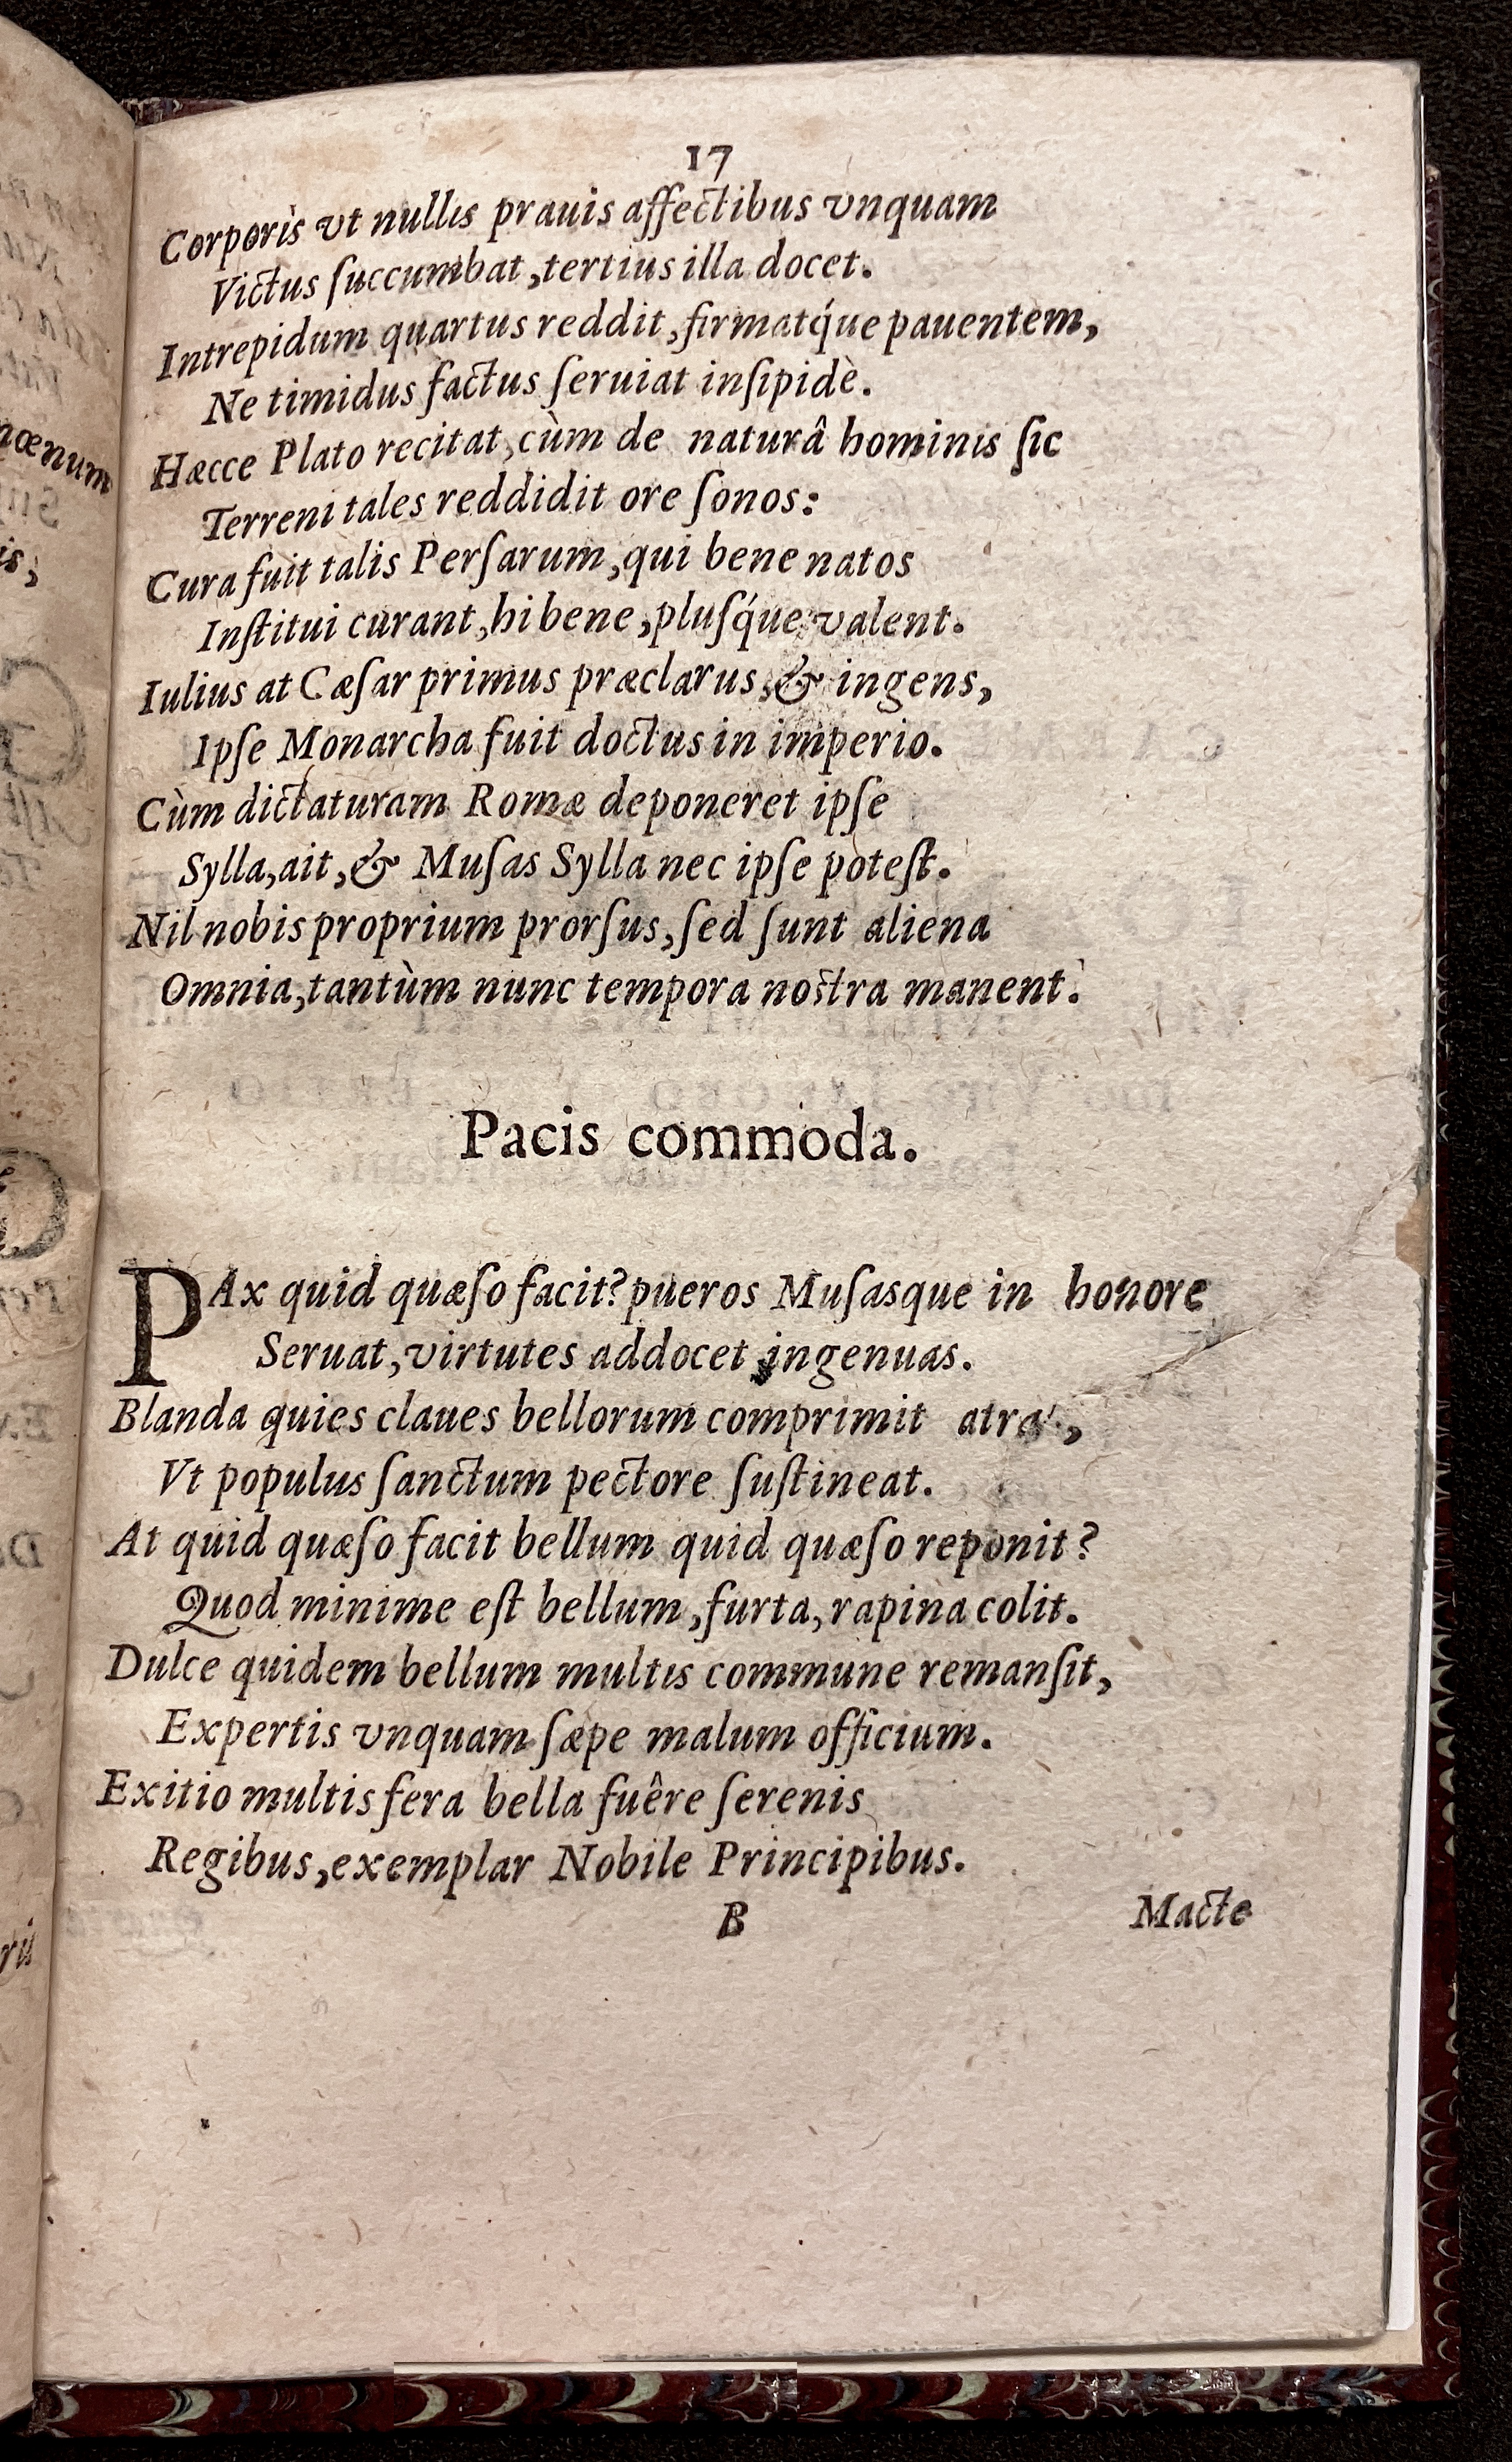 17
Corporis vt nullis prauis affectibus vnquam
Victus ſuccumbat, tertius illa docet.
Intrepidum quartus reddit, firmatq́ue pauentem,
Ne timidus factus ſeruiat inſipidè.
Hæcce Plato recitat, cùm de naturâ hominis ſic
Terreni tales reddidit ore ſonos:
Cura fuit talis Perſarum, qui bene natos
Inſtitui curant, hi bene, pluſq́ue valent.
Iulius at Cæſar primus præclarus, & ingens,
Ipſe Monarcha fuit doctus in imperio.
Cùm dictaturam Romæ deponeret ipſe
Sylla, ait, & Muſas Sylla nec ipſe poteſt.
Nil nobis proprium prorſus, ſed ſunt aliena
Omnia, tantùm nunc tempora noſtra manent.
Pacis commoda.
PAx quid quæſo facit? pueros Muſasque in honore
Seruat, virtutes addocet ingenuas.
Blanda quies claues bellorum comprimit
Vt populus ſanctum pectore ſuſtineat.
At quid quæſo facit bellum quid quæſo reponit?
Quod minime eſt bellum, furta, rapina colit.
Dulce quidem bellum multis commune remanſit,
Expertis vnquam ſæpe malum officium.
Exitio multis fera bella fuêre ſerenis
Regibus, exemplar Nobile Principibus.
B
Macte